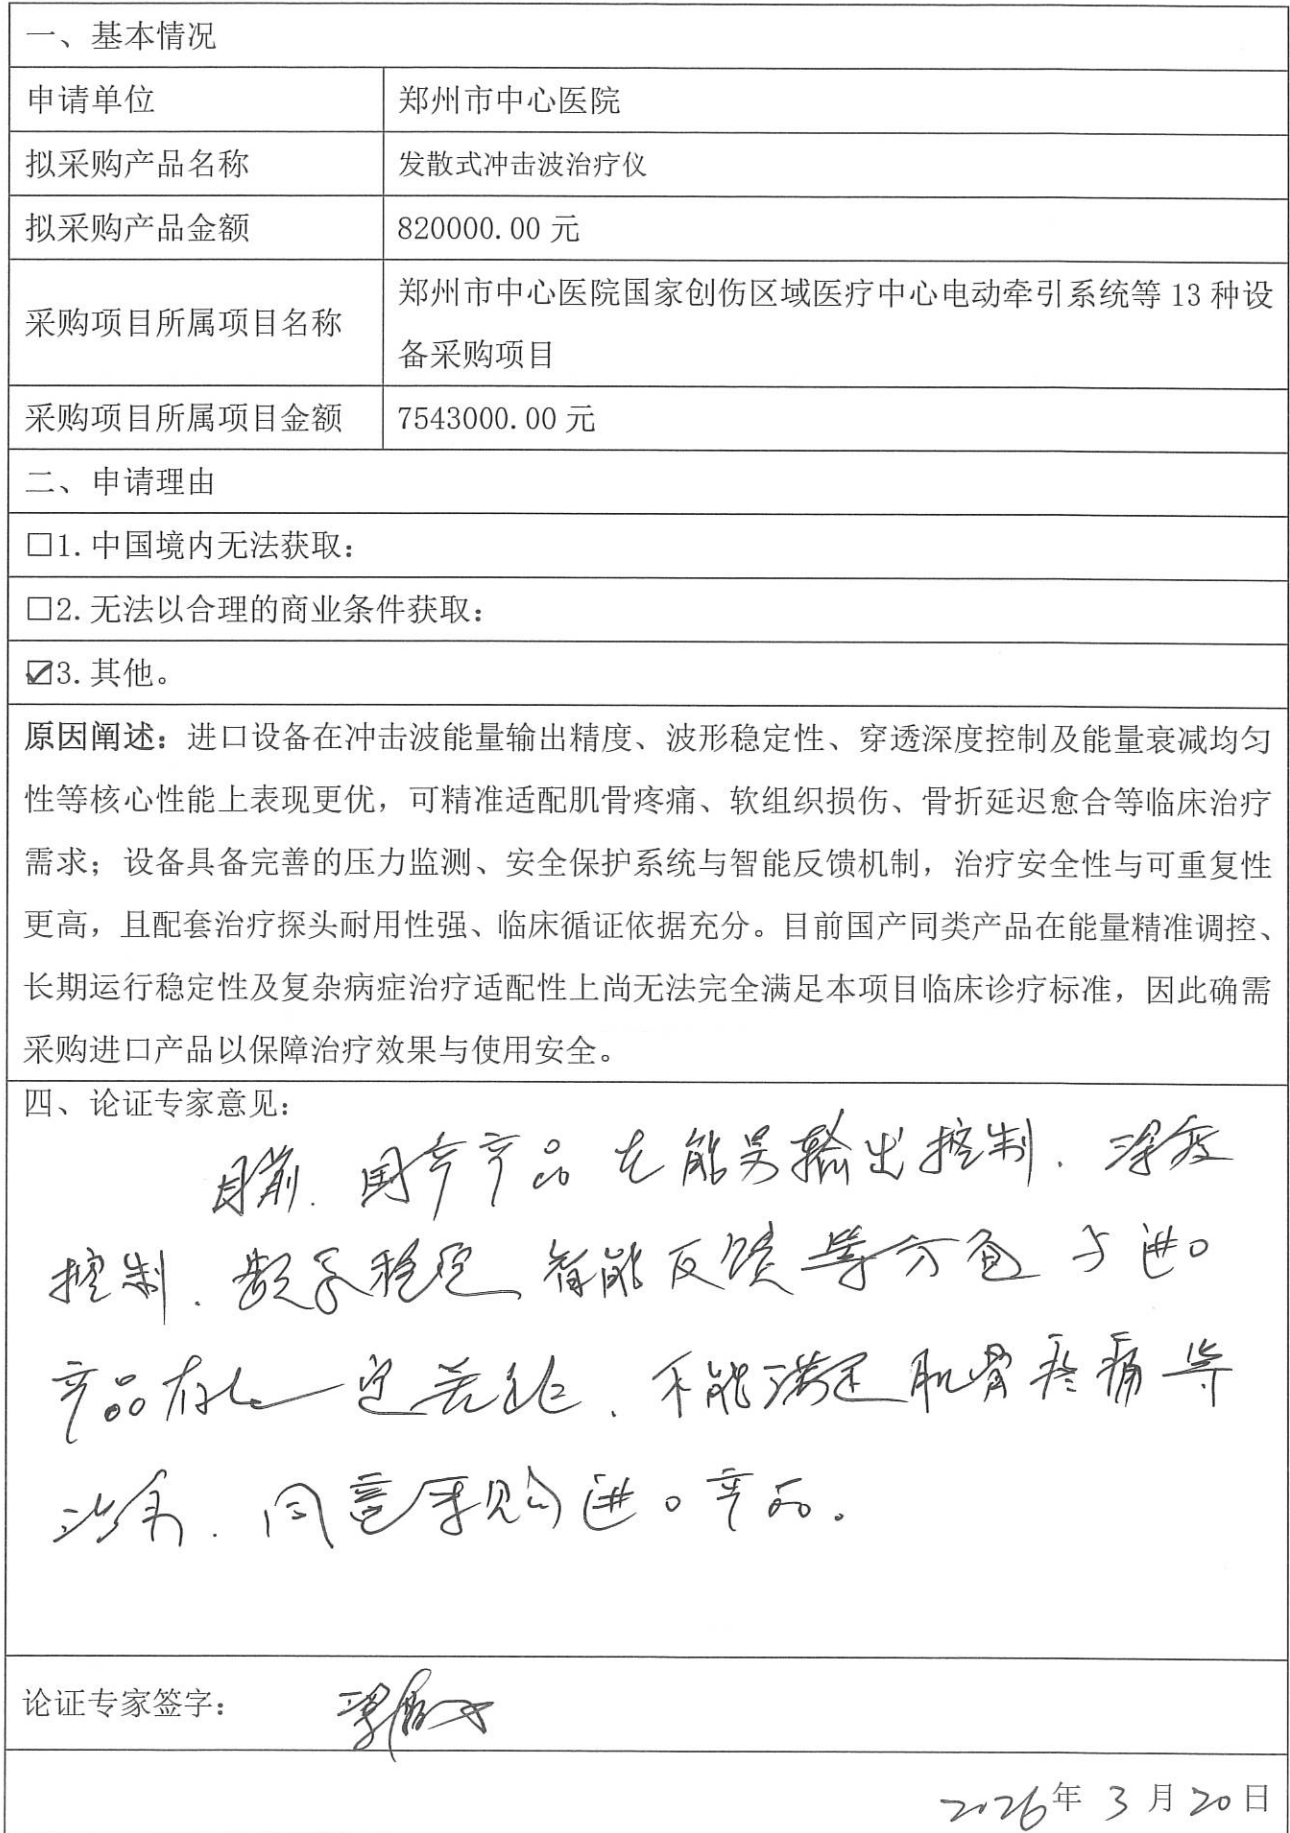 一、基本情况
申请单位
郑州市中心医院
拟采购产品名称
发散式冲击波治疗仪
拟采购产品金额
820000.00 元
采购项目所属项目名称
郑州市中心医院国家创伤区域医疗中心电动牵引系统等 13 种设
备采购项目
采购项目所属项目金额
7543000.00 元
二、申请理由
☐1. 中国境内无法获取：
☐2. 无法以合理的商业条件获取：
☑3. 其他。
原因阐述：进口设备在冲击波能量输出精度、波形稳定性、穿透深度控制及能量衰减均匀
性等核心性能上表现更优，可精准适配肌骨疼痛、软组织损伤、骨折延迟愈合等临床治疗
需求；设备具备完善的压力监测、安全保护系统与智能反馈机制，治疗安全性与可重复性
更高，且配套治疗探头耐用性强、临床循证依据充分。目前国产同类产品在能量精准调控、
长期运行稳定性及复杂病症治疗适配性上尚无法完全满足本项目临床诊疗标准，因此确需
采购进口产品以保障治疗效果与使用安全。
四、论证专家意见：
目前、国产产品在能量输出控制、深度
控制、稳定、智能反馈等方面与进口
产品存在一定差距、不能满足肌骨疼痛等
同意采购进口产品。
论证专家签字：
2026年 3 月 20 日